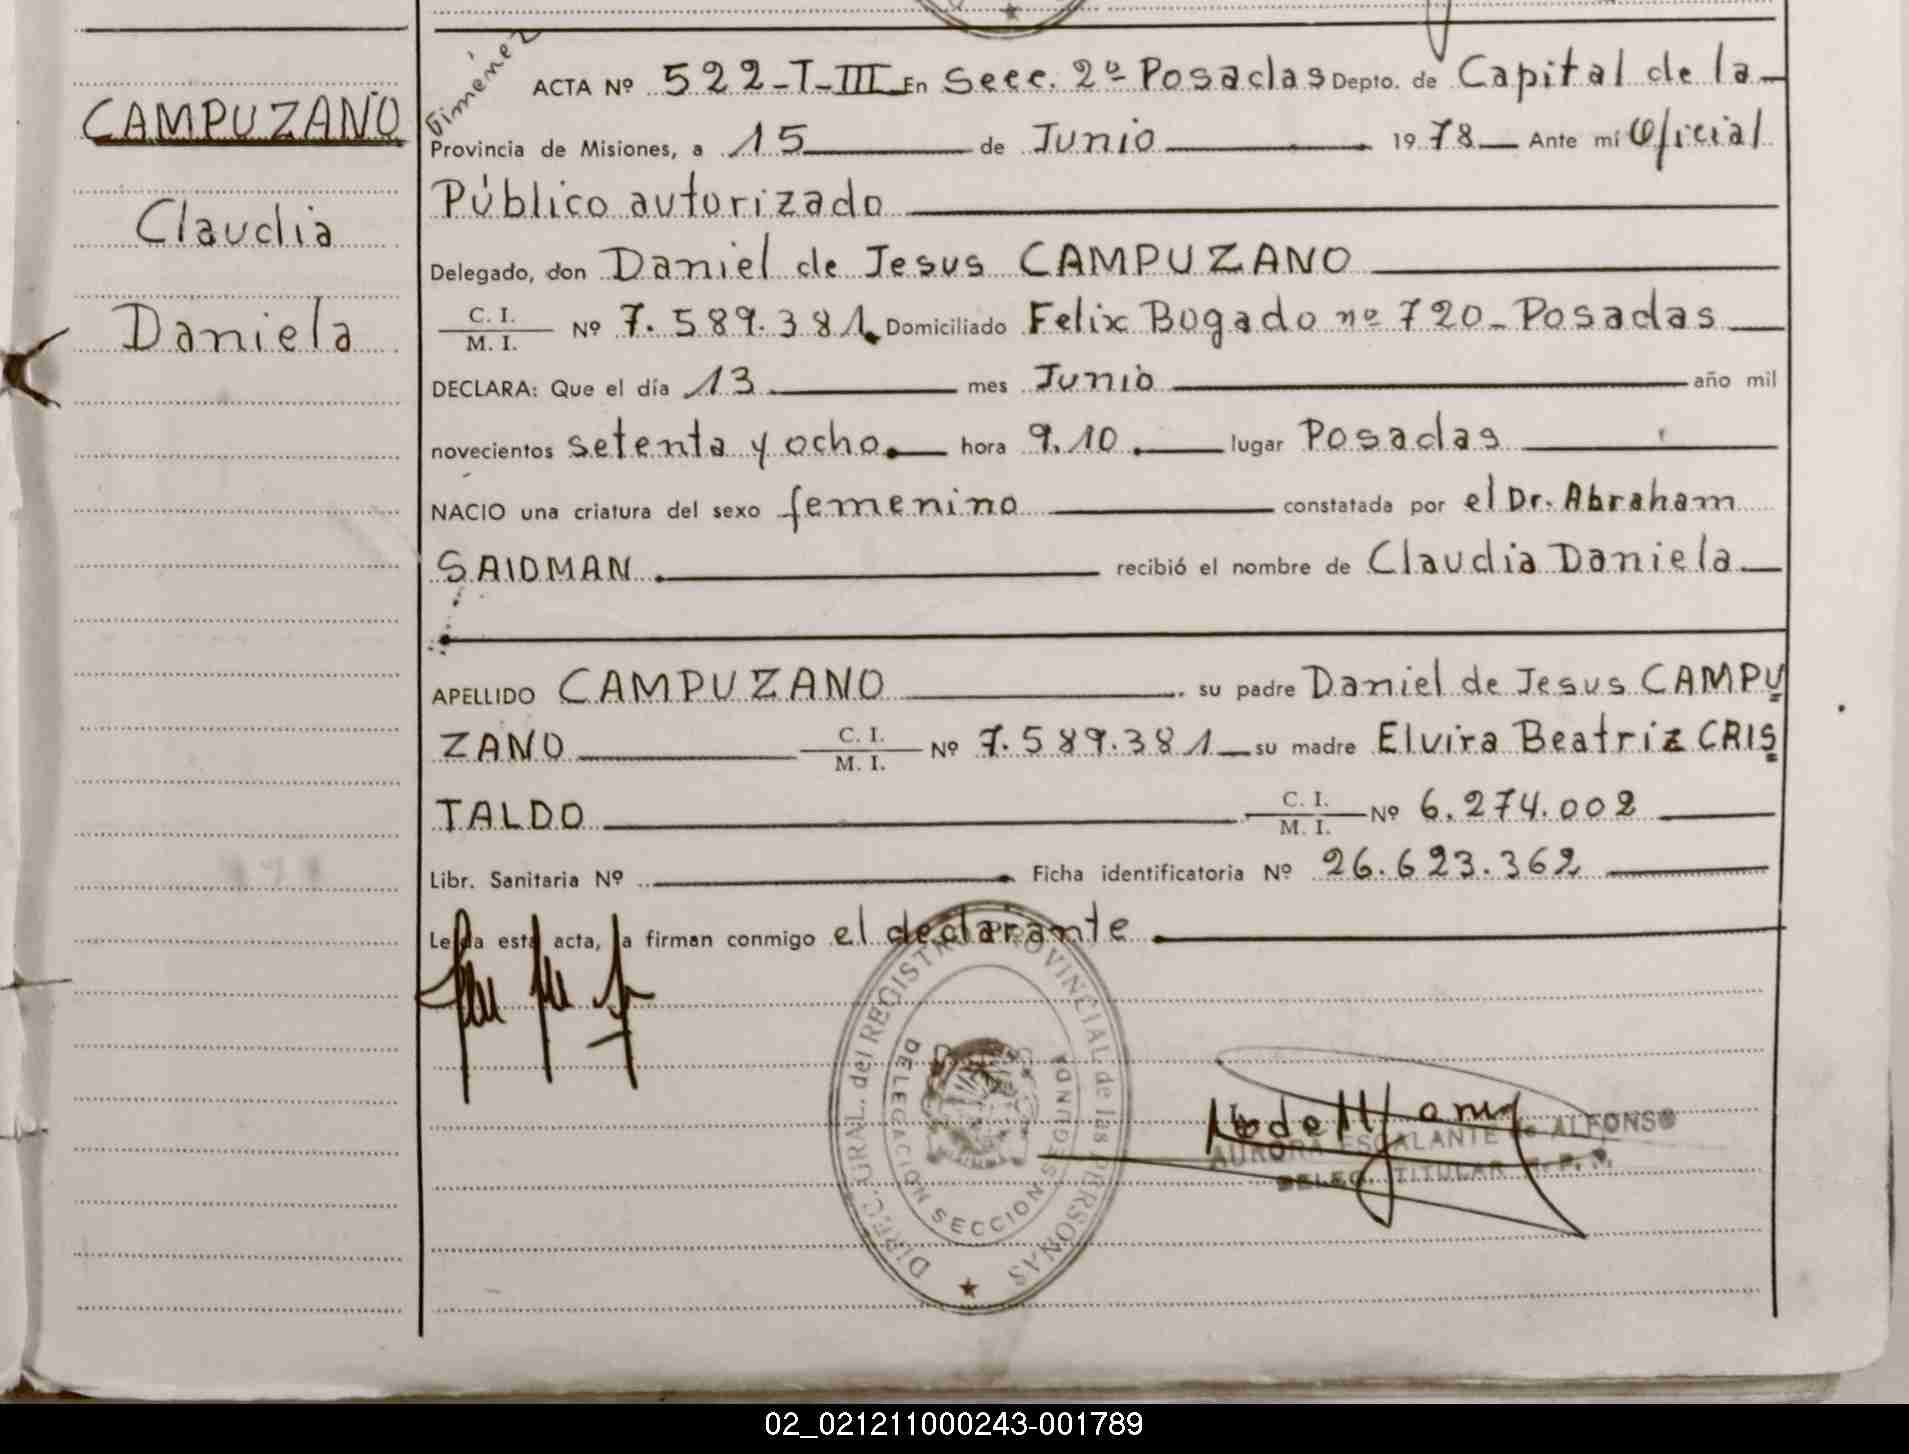 CAMPUZANO
Claudia
Daniela
Giménez
ACTA Nº 522-T-III En Secc. 2º Posadas Depto. de Capital de la
Provincia de Misiones, a 15 de Junio 1978 Ante mí Oficial
Público autorizado
Delegado, don Daniel de Jesus CAMPUZANO
C. I. / M. I. Nº 7.589.381 Domiciliado Felix Bogado nº 720-Posadas
DECLARA: Que el día 13 mes Junio año mil
novecientos setenta y ocho. hora 9.10. lugar Posadas
NACIO una criatura del sexo femenino constatada por el Dr. Abraham
SAIDMAN. recibió el nombre de Claudia Daniela
APELLIDO CAMPUZANO su padre Daniel de Jesus CAMPU
ZANO C. I. / M. I. Nº 7.589.381 su madre Elvira Beatriz CRIS
TALDO C. I. / M. I. Nº 6.274.002
Libr. Sanitaria Nº Ficha identificatoria Nº 26.623.362
Leída esta acta, la firman conmigo el declarante
DIREC. GRAL. del REGISTRO PROVINCIAL de las PERSONAS
DELEGACION SECCION SEGUNDA
AURORA ESCALANTE de ALFONSO
DELEG. TITULAR R. P. P.
02_021211000243-001789